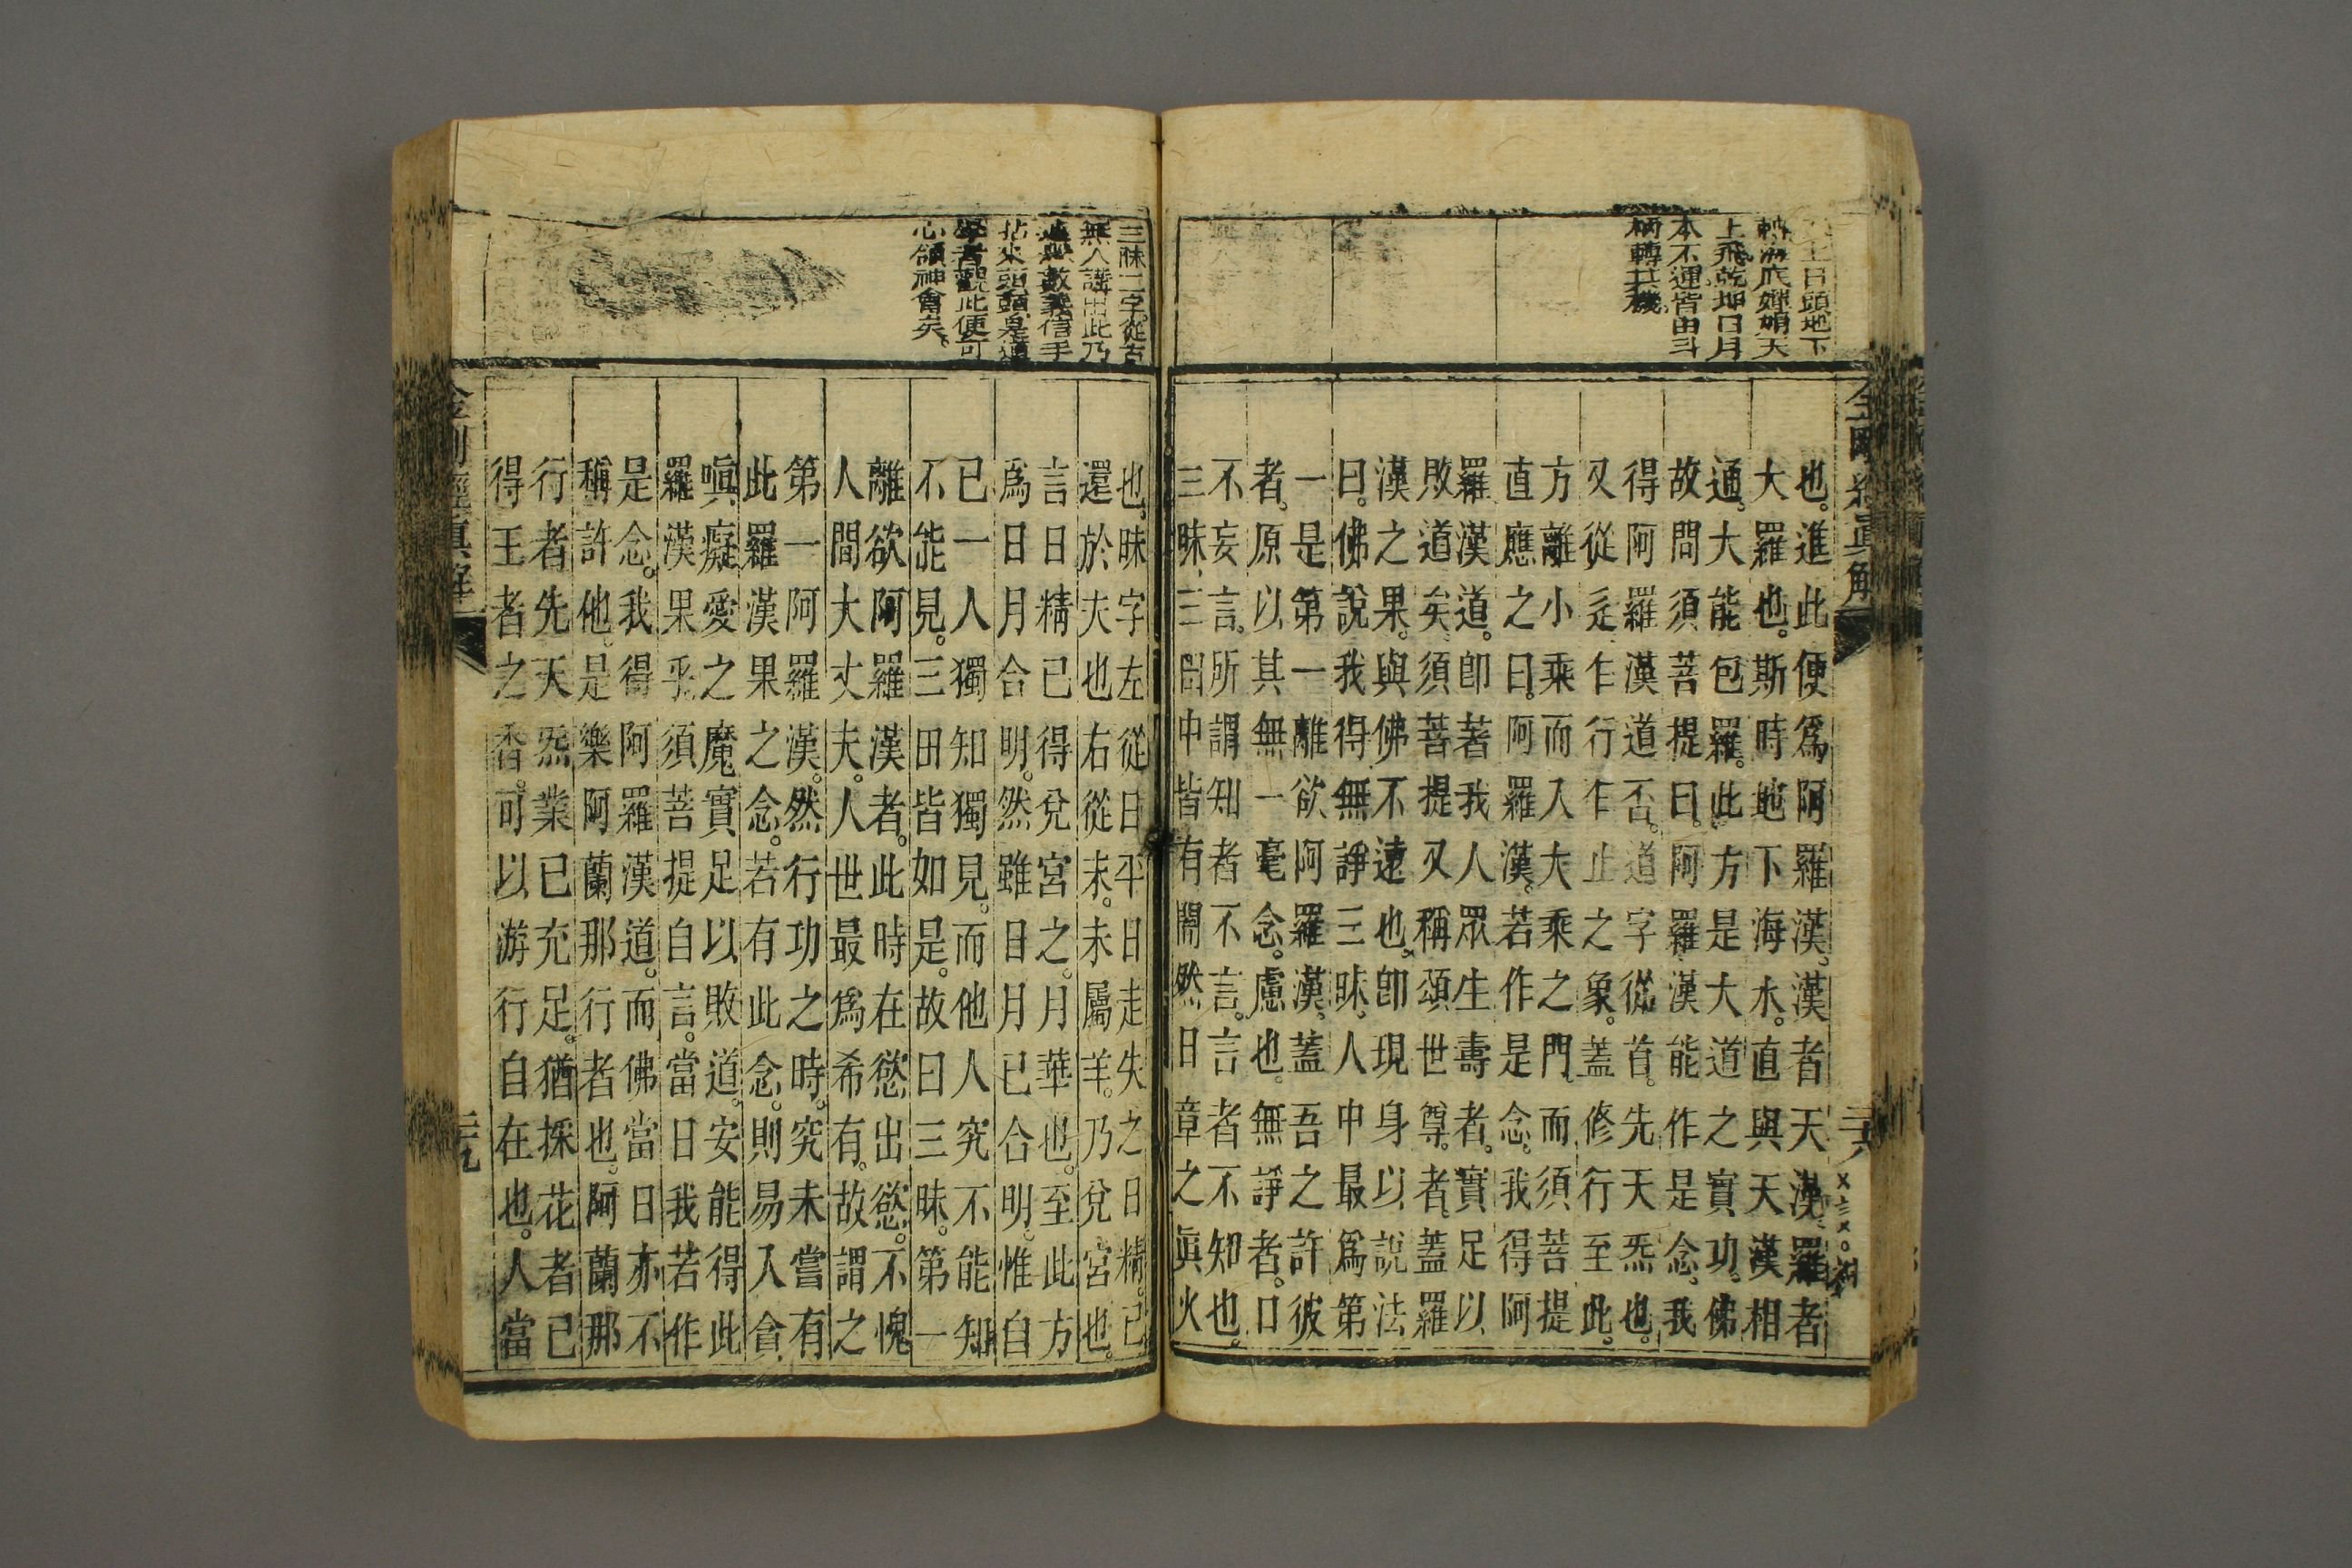 日頭地下
海底嬋娟天
上飛乾坤日月
本不運皆由斗
柄轉其機
也。進此便爲阿羅漢。漢者天漢羅者
大羅也。斯時地下海水。直與天漢相
通。大能包羅。此方是大道之實功。佛
故問須菩提曰。阿羅漢能作是念。我
得阿羅漢道否。道字從首。先天炁也。
又從辵乍行乍止之象。蓋修行至此。
方離小乘而入大乘之門。而須菩提
直應之曰。阿羅漢。若作是念。我得阿
羅漢道。卽著我人眾生壽者。實足以
敗道矣。須菩提又稱頌世尊者。蓋羅
漢之果。與佛不遠也。卽現身以說法
曰。佛說我得無諍三昧。人中最爲第
一是第一離欲阿羅漢。蓋吾之許彼
者。原以其無一毫念慮也。無諍者。口
不妄言。所謂知者不言。言者不知也。
三昧、三田中皆有闇然日章之眞火
三昧二字。從古
無人講出此乃
數義信手
拈來頭頭是道
學者觀此便可
心領神會矣。
也。昧字左從日平日走失之日精。已
還於夫也右從未。未屬羊。乃兌宮也。
言日精已得兌宮之。月華也。至此方
爲日月合明。然雖日月已合明。惟自
已一人獨知獨見。而他人究不能知
不能見。三田皆如是。故曰三昧。第一
離欲阿羅漢者。此時在慾出慾。不愧
人間大丈夫。人世最爲希有。故謂之
第一阿羅漢。然行功之時。究未嘗有
此羅漢果之念。若有此念。則易入貪
嗔癡愛之魔實足以敗道。安能得此
羅漢果乎須菩提自言。當日我若作
是念。我得阿羅漢道。而佛當日亦不
稱許他。是樂阿蘭那行者也。阿蘭那
行者先天炁業已充足。猶採花者已
得王者之香。可以游行自在也。人當
金剛經眞解
二六
金剛經眞解
二九